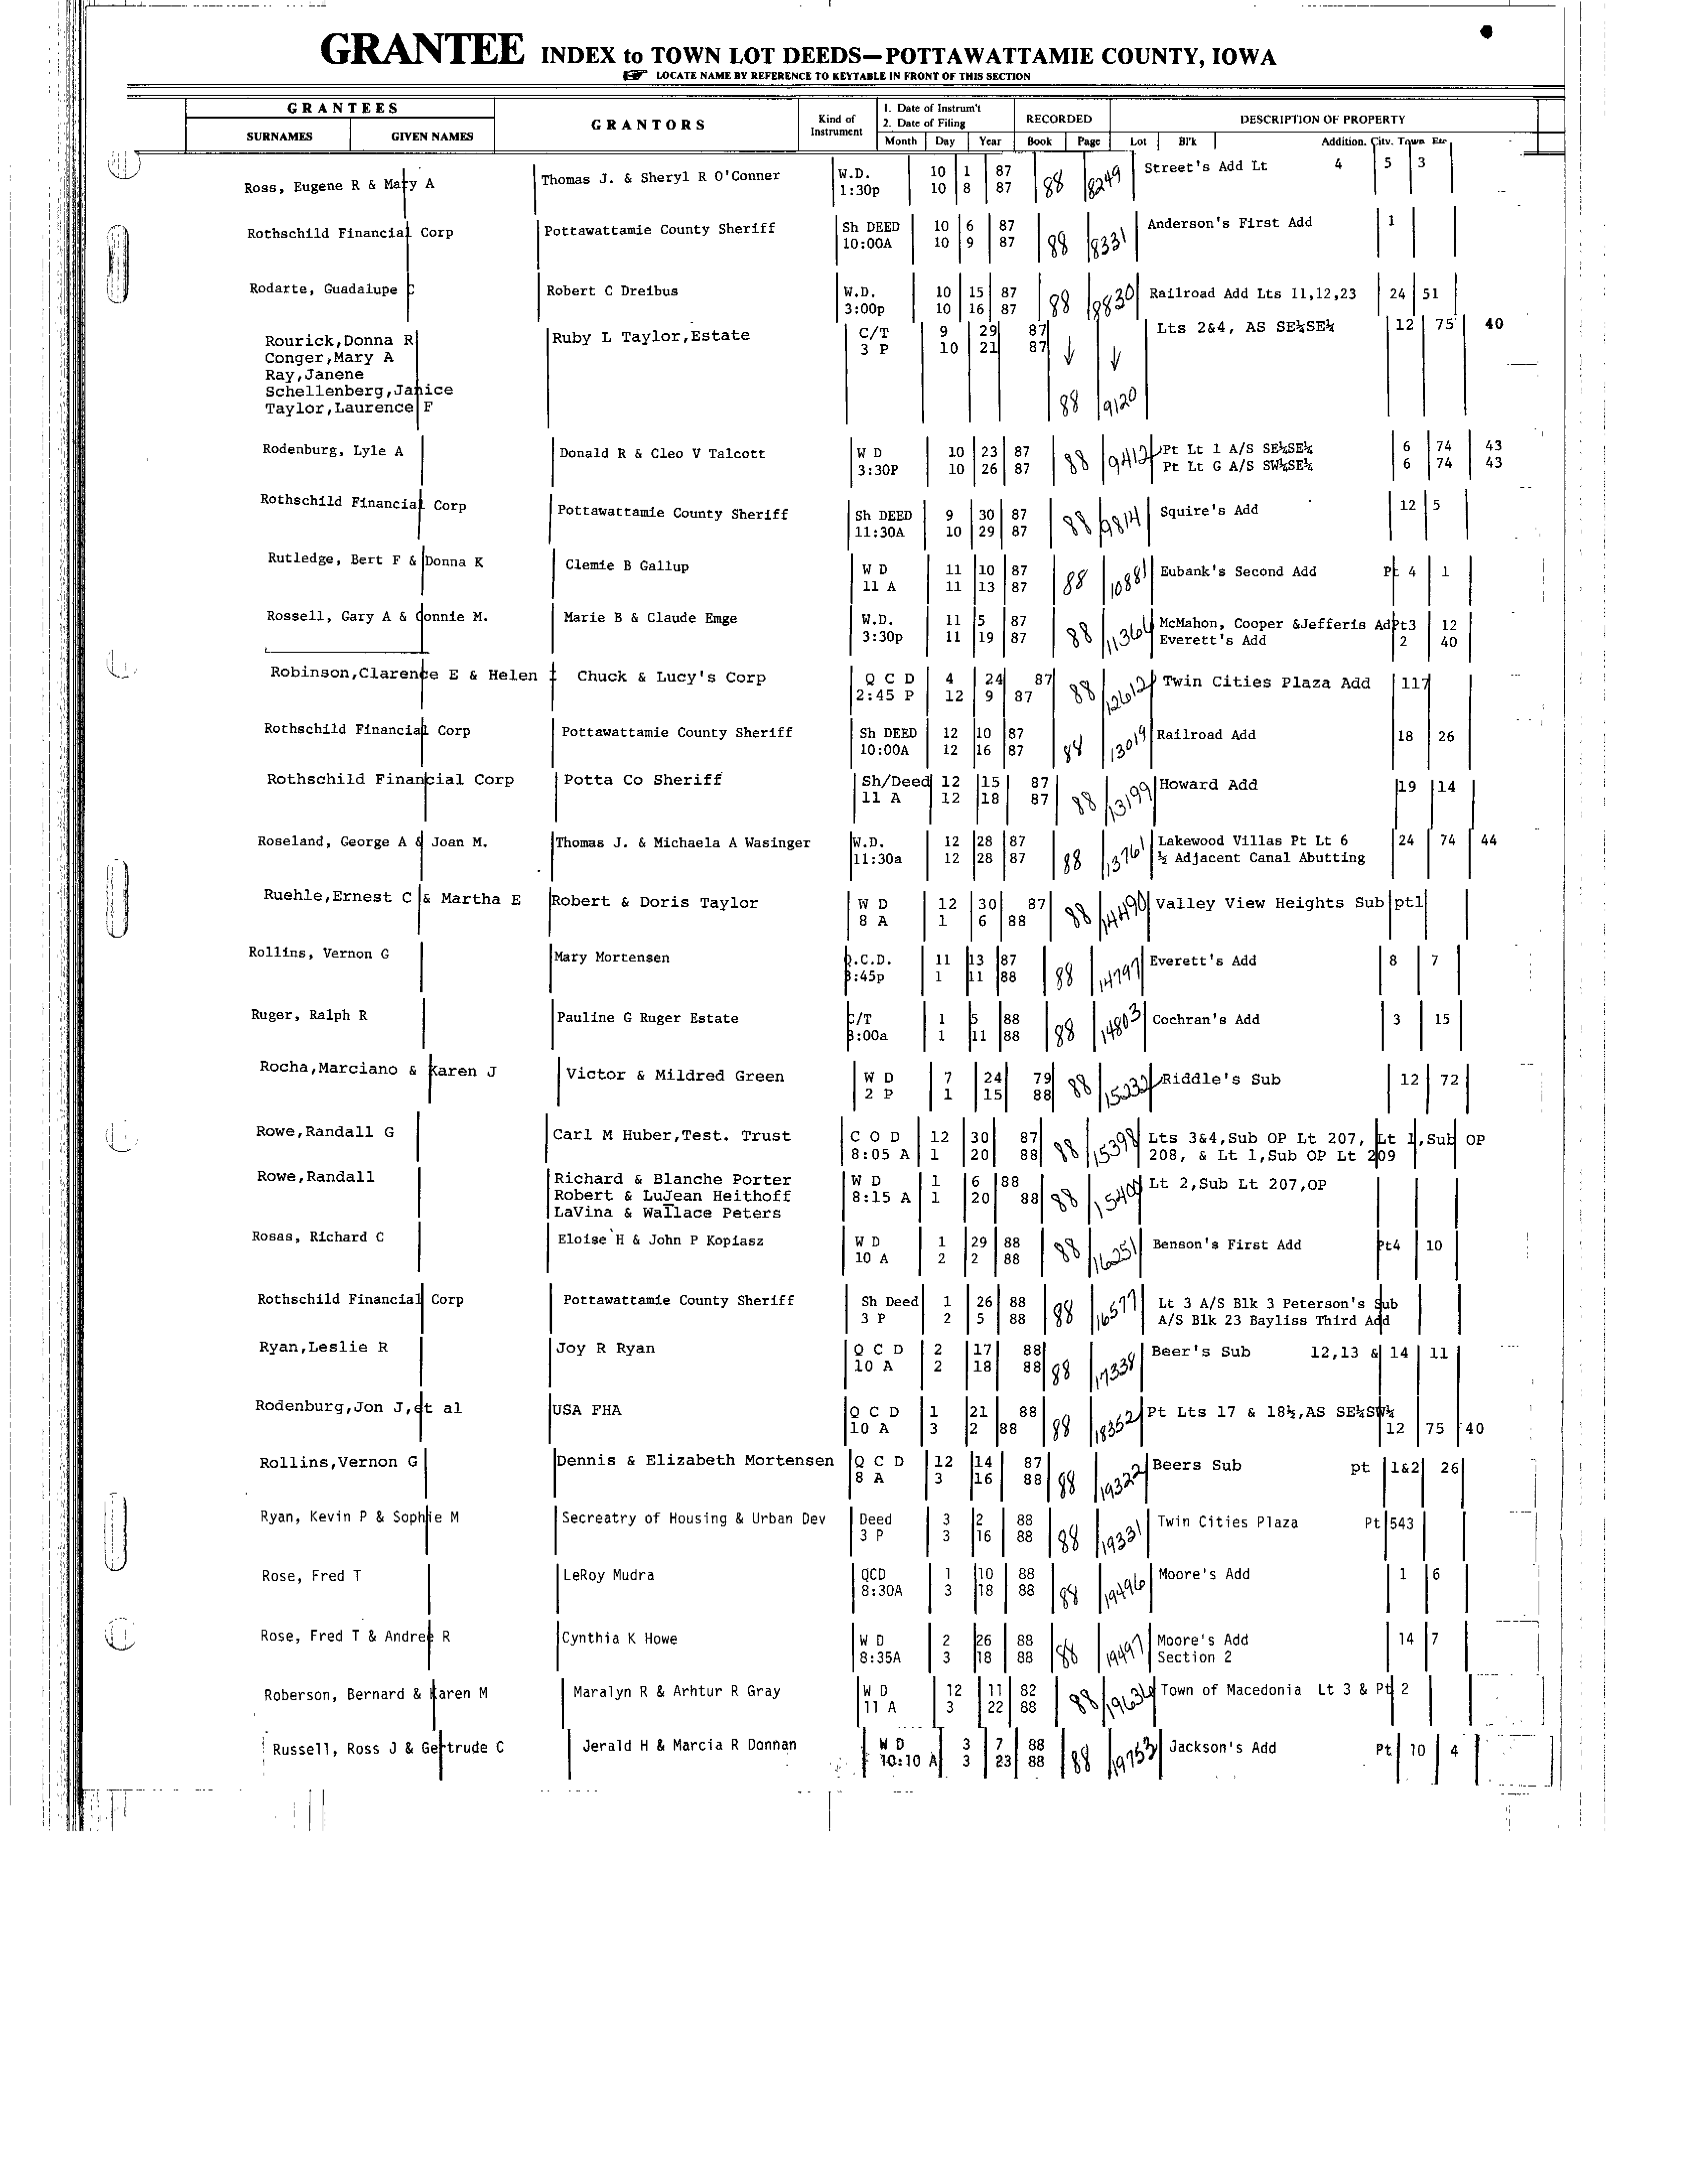 GRANTEE INDEX to TOWN LOT DEEDS—POTTAWATTAMIE COUNTY, IOWA
☞ LOCATE NAME BY REFERENCE TO KEYTABLE IN FRONT OF THIS SECTION
GRANTEES GRANTORS Kind of Instrument 1. Date of Instrum't 2. Date of Filing RECORDED DESCRIPTION OF PROPERTY
SURNAMES GIVEN NAMES Month Day Year Book Page Lot Bl'k Addition, City, Town Etc
Ross, Eugene R & Mary A Thomas J. & Sheryl R O'Conner W.D. 10 1 87 88 8249 Street's Add Lt 4 5 3
1:30p 10 8 87
Rothschild Financial Corp Pottawattamie County Sheriff Sh DEED 10 6 87 88 8331 Anderson's First Add 1
10:00A 10 9 87
Rodarte, Guadalupe C Robert C Dreibus W.D. 10 15 87 88 8830 Railroad Add Lts 11,12,23 24 51
3:00p 10 16 87
Rourick,Donna R Ruby L Taylor,Estate C/T 9 29 87 Lts 2&4, AS SE¼SE¼ 12 75 40
Conger,Mary A 3 P 10 21 87 ↓ ↓
Ray,Janene
Schellenberg,Janice
Taylor,Laurence F 88 9120
Rodenburg, Lyle A Donald R & Cleo V Talcott W D 10 23 87 88 9412 Pt Lt 1 A/S SE¼SE¼ 6 74 43
3:30P 10 26 87 Pt Lt G A/S SW¼SE¼ 6 74 43
Rothschild Financial Corp Pottawattamie County Sheriff Sh DEED 9 30 87 88 9814 Squire's Add 12 5
11:30A 10 29 87
Rutledge, Bert F & Donna K Clemie B Gallup W D 11 10 87 88 10881 Eubank's Second Add Pt 4 1
11 A 11 13 87
Rossell, Gary A & Connie M. Marie B & Claude Emge W.D. 11 5 87 88 11364 McMahon, Cooper &Jefferis Ad Pt3 12
3:30p 11 19 87 Everett's Add 2 40
Robinson,Clarence E & Helen I Chuck & Lucy's Corp Q C D 4 24 87 88 12612 Twin Cities Plaza Add 117
2:45 P 12 9 87
Rothschild Financial Corp Pottawattamie County Sheriff Sh DEED 12 10 87 88 13019 Railroad Add 18 26
10:00A 12 16 87
Rothschild Financial Corp Potta Co Sheriff Sh/Deed 12 15 87 88 13199 Howard Add 19 14
11 A 12 18 87
Roseland, George A & Joan M. Thomas J. & Michaela A Wasinger W.D. 12 28 87 88 13761 Lakewood Villas Pt Lt 6 24 74 44
11:30a 12 28 87 ½ Adjacent Canal Abutting
Ruehle,Ernest C & Martha E Robert & Doris Taylor W D 12 30 87 88 14490 Valley View Heights Sub pt1
8 A 1 6 88
Rollins, Vernon G Mary Mortensen Q.C.D. 11 13 87 88 14797 Everett's Add 8 7
3:45p 1 11 88
Ruger, Ralph R Pauline G Ruger Estate C/T 1 5 88 88 14803 Cochran's Add 3 15
8:00a 1 11 88
Rocha,Marciano & Karen J Victor & Mildred Green W D 7 24 79 88 15232 Riddle's Sub 12 72
2 P 1 15 88
Rowe,Randall G Carl M Huber,Test. Trust C O D 12 30 87 88 15398 Lts 3&4,Sub OP Lt 207, Lt 1,Sub OP
8:05 A 1 20 88 208, & Lt 1,Sub OP Lt 209
Rowe,Randall Richard & Blanche Porter W D 1 6 88 88 15400 Lt 2,Sub Lt 207,OP
Robert & LuJean Heithoff 8:15 A 1 20 88
LaVina & Wallace Peters
Rosas, Richard C Eloise H & John P Kopiasz W D 1 29 88 88 16251 Benson's First Add Pt4 10
10 A 2 2 88
Rothschild Financial Corp Pottawattamie County Sheriff Sh Deed 1 26 88 88 16577 Lt 3 A/S Blk 3 Peterson's Sub
3 P 2 5 88 A/S Blk 23 Bayliss Third Add
Ryan,Leslie R Joy R Ryan Q C D 2 17 88 88 17338 Beer's Sub 12,13 & 14 11
10 A 2 18 88
Rodenburg,Jon J,et al USA FHA Q C D 1 21 88 88 18352 Pt Lts 17 & 18½,AS SE¼SW¼
10 A 3 2 88 12 75 40
Rollins,Vernon G Dennis & Elizabeth Mortensen Q C D 12 14 87 88 19322 Beers Sub pt 1&2 26
8 A 3 16 88
Ryan, Kevin P & Sophie M Secreatry of Housing & Urban Dev Deed 3 2 88 88 19331 Twin Cities Plaza Pt 543
3 P 3 16 88
Rose, Fred T LeRoy Mudra QCD 1 10 88 88 19496 Moore's Add 1 6
8:30A 3 18 88
Rose, Fred T & Andree R Cynthia K Howe W D 2 26 88 88 19497 Moore's Add 14 7
8:35A 3 18 88 Section 2
Roberson, Bernard & Karen M Maralyn R & Arhtur R Gray W D 12 11 82 88 19636 Town of Macedonia Lt 3 & Pt 2
11 A 3 22 88
Russell, Ross J & Gertrude C Jerald H & Marcia R Donnan W D 3 7 88 88 19753 Jackson's Add Pt 10 4
10:10 A 3 23 88